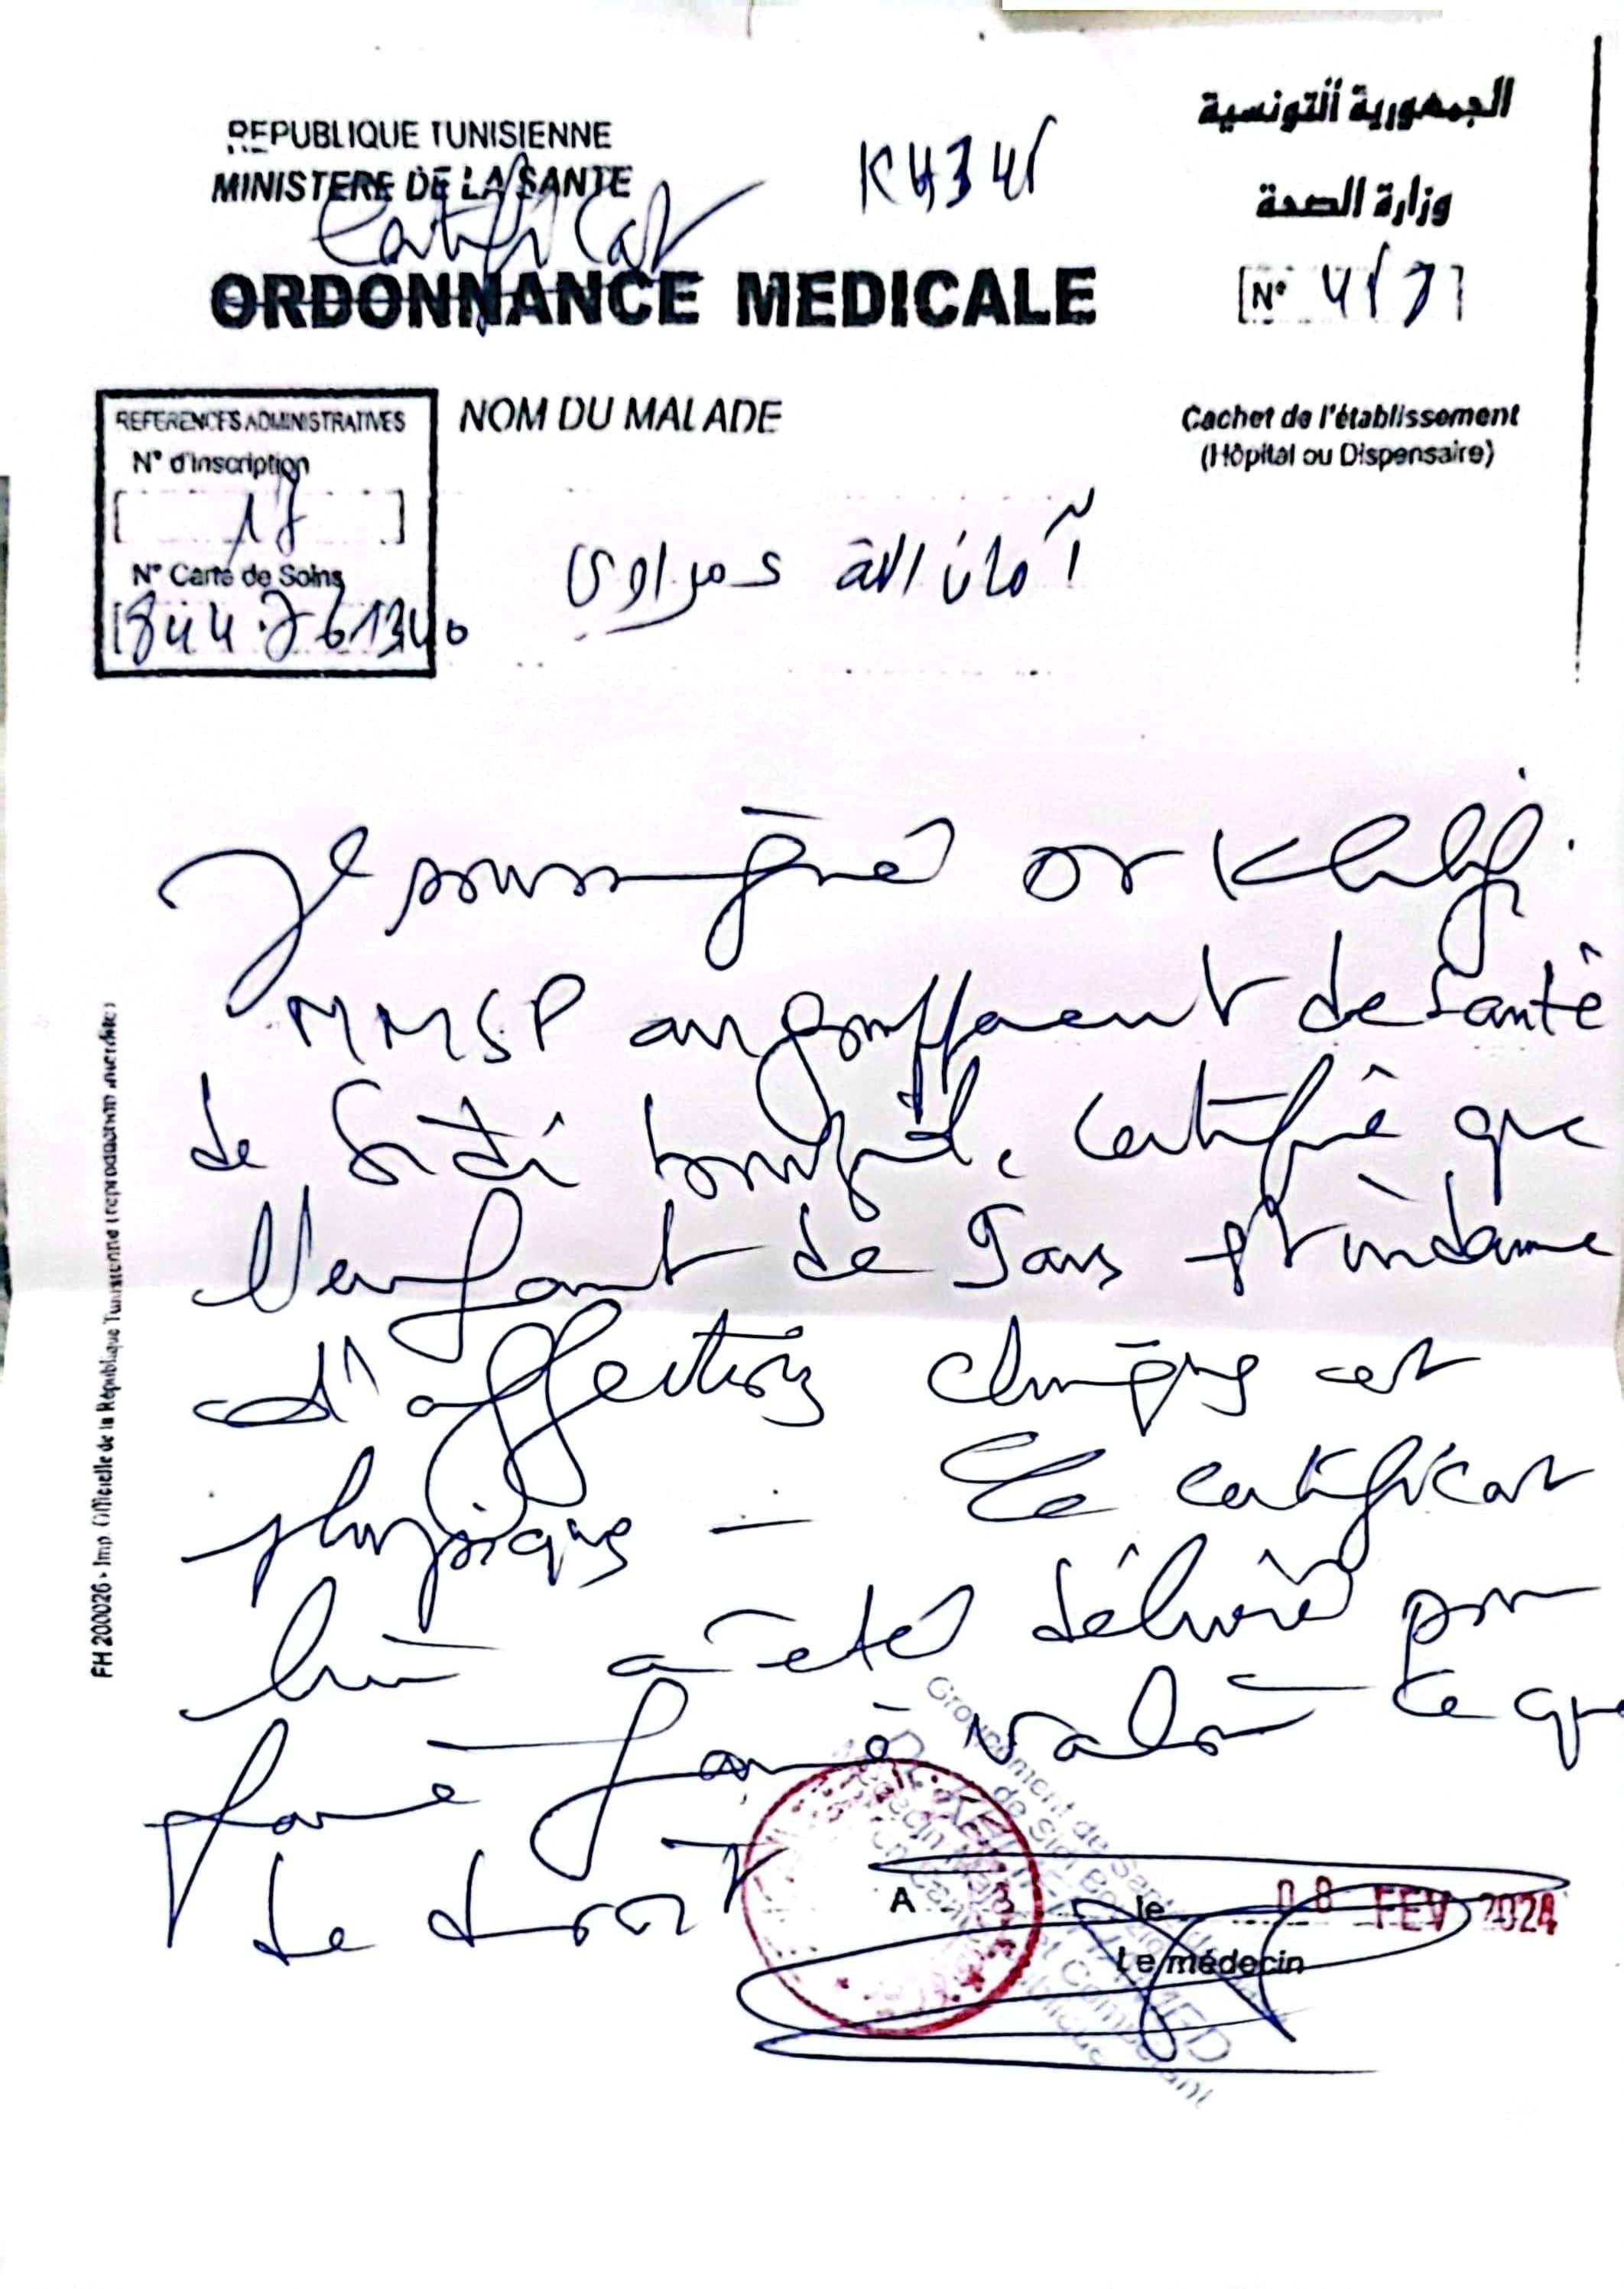 REPUBLIQUE TUNISIENNE
MINISTERE DE LA SANTE
الجمهورية التونسية
وزارة الصحة
Certificat
ORDONNANCE MEDICALE
N°
REFERENCES ADMINISTRATIVES
N° d'inscription
N° Carte de Soins
NOM DU MALADE
آمان الله
Cachet de l'établissement
(Hôpital ou Dispensaire)
Je soussigné Dr
MMSP au groupement de Santé
de Sidi certifie que
l'enfant de 9 ans est indemne
d'affections cliniques
physiques - Ce certificat
lui a été délivré pour
faire valoir ce que
de droit
Groupement de Santé
de Sidi
A le 08 FEV 2024
Le médecin
FH 200026 - Imp. Officielle de la République Tunisienne (reproduction interdite)